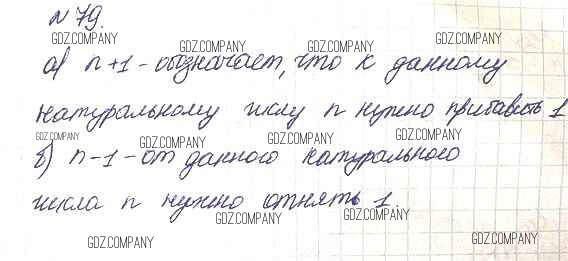 № 79.
а) n+1 - обозначает, что к данному
натуральному числу n нужно прибавить 1
б) n-1 - от данного натурального
числа n нужно отнять 1.
GDZ.COMPANY GDZ.COMPANY GDZ.COMPANY
GDZ.COMPANY GDZ.COMPANY GDZ.COMPANY
GDZ.COMPANY GDZ.COMPANY GDZ.COMPANY GDZ.COMPANY
GDZ.COMPANY GDZ.COMPANY GDZ.COMPANY
GDZ.COMPANY GDZ.COMPANY